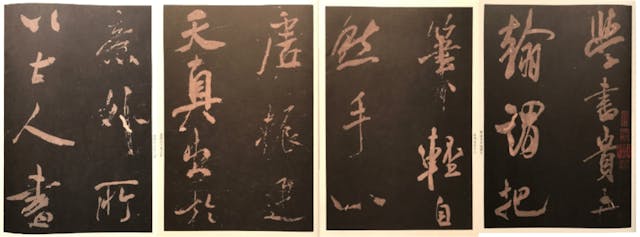 學書貴弄
翰謂把
筆輕自
然手心
虛振迅
天真出於
意外所
以古人書